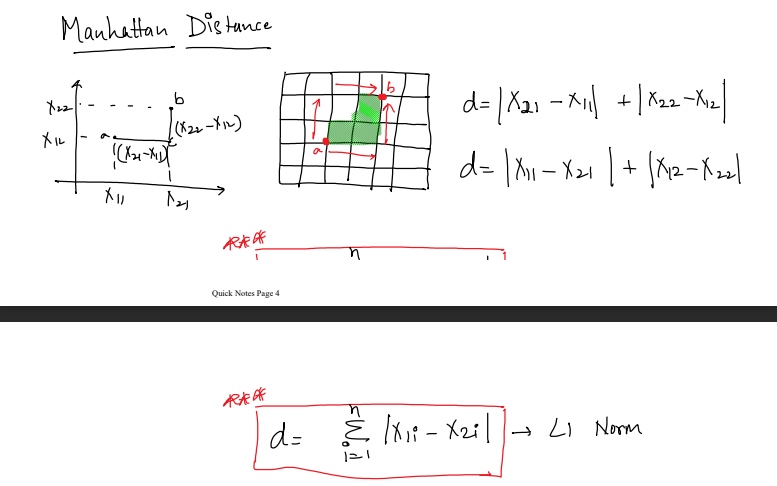 Manhattan Distance
x22 b
x12 a (x22 - x12)
(x21 - x11)
x11 x21
b
a
d = |x21 - x11| + |x22 - x12|
d = |x11 - x21| + |x12 - x22|
***
n
Quick Notes Page 4
***
n
d = Σ |x1i - x2i| → L1 Norm
i=1